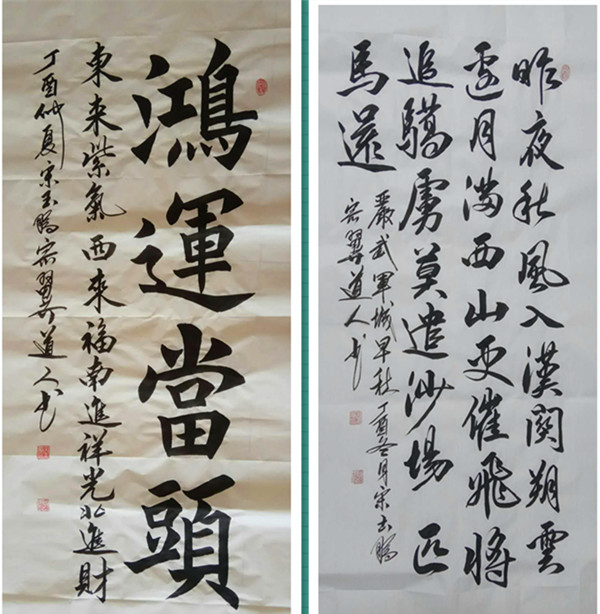 鴻運當頭
東来紫氣西来福南進祥光北進財
丁酉仲夏宋玉鵬翼道人书
昨夜秋風入漢関朔雲
邊月滿西山更催飛將
追驕虜莫遣沙場匹
馬還
嚴武軍城早秋丁酉冬月宋玉鵬
翼道人书